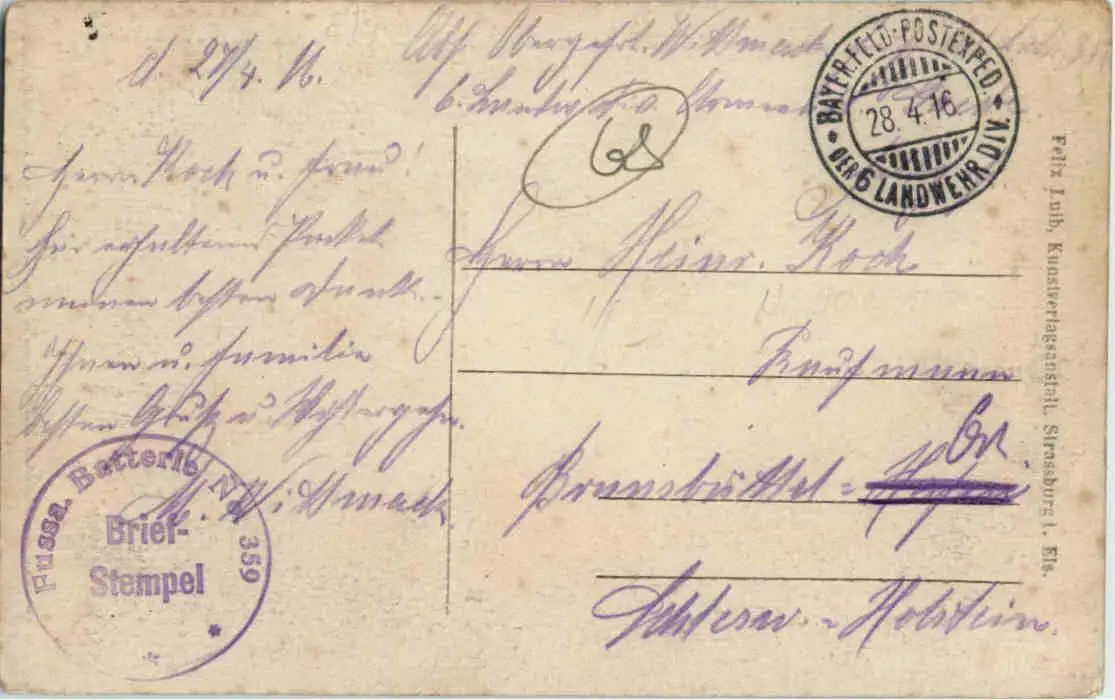 d. 27/4. 16.
Abs. Obergefrt. Wittmack
6.
Herrn Koch u. Frau!
Für erhaltenes Packet
meinen besten Dank.
Ihnen u. Familie
besten Gruß u. Wohlergehn.
M. Wittmack.
Fussa. Batterie Nr 359
Brief-
Stempel
BAYER. FELD-POSTEXPED.
28. 4. 16
DER 6 LANDWEHR DIV.
Herrn Heinr. Koch
Kaufmann
Brunsbüttel-
Ort
Schlesw.-Holstein.
Felix Luib, Kunstverlagsanstalt, Strassburg i. Els.